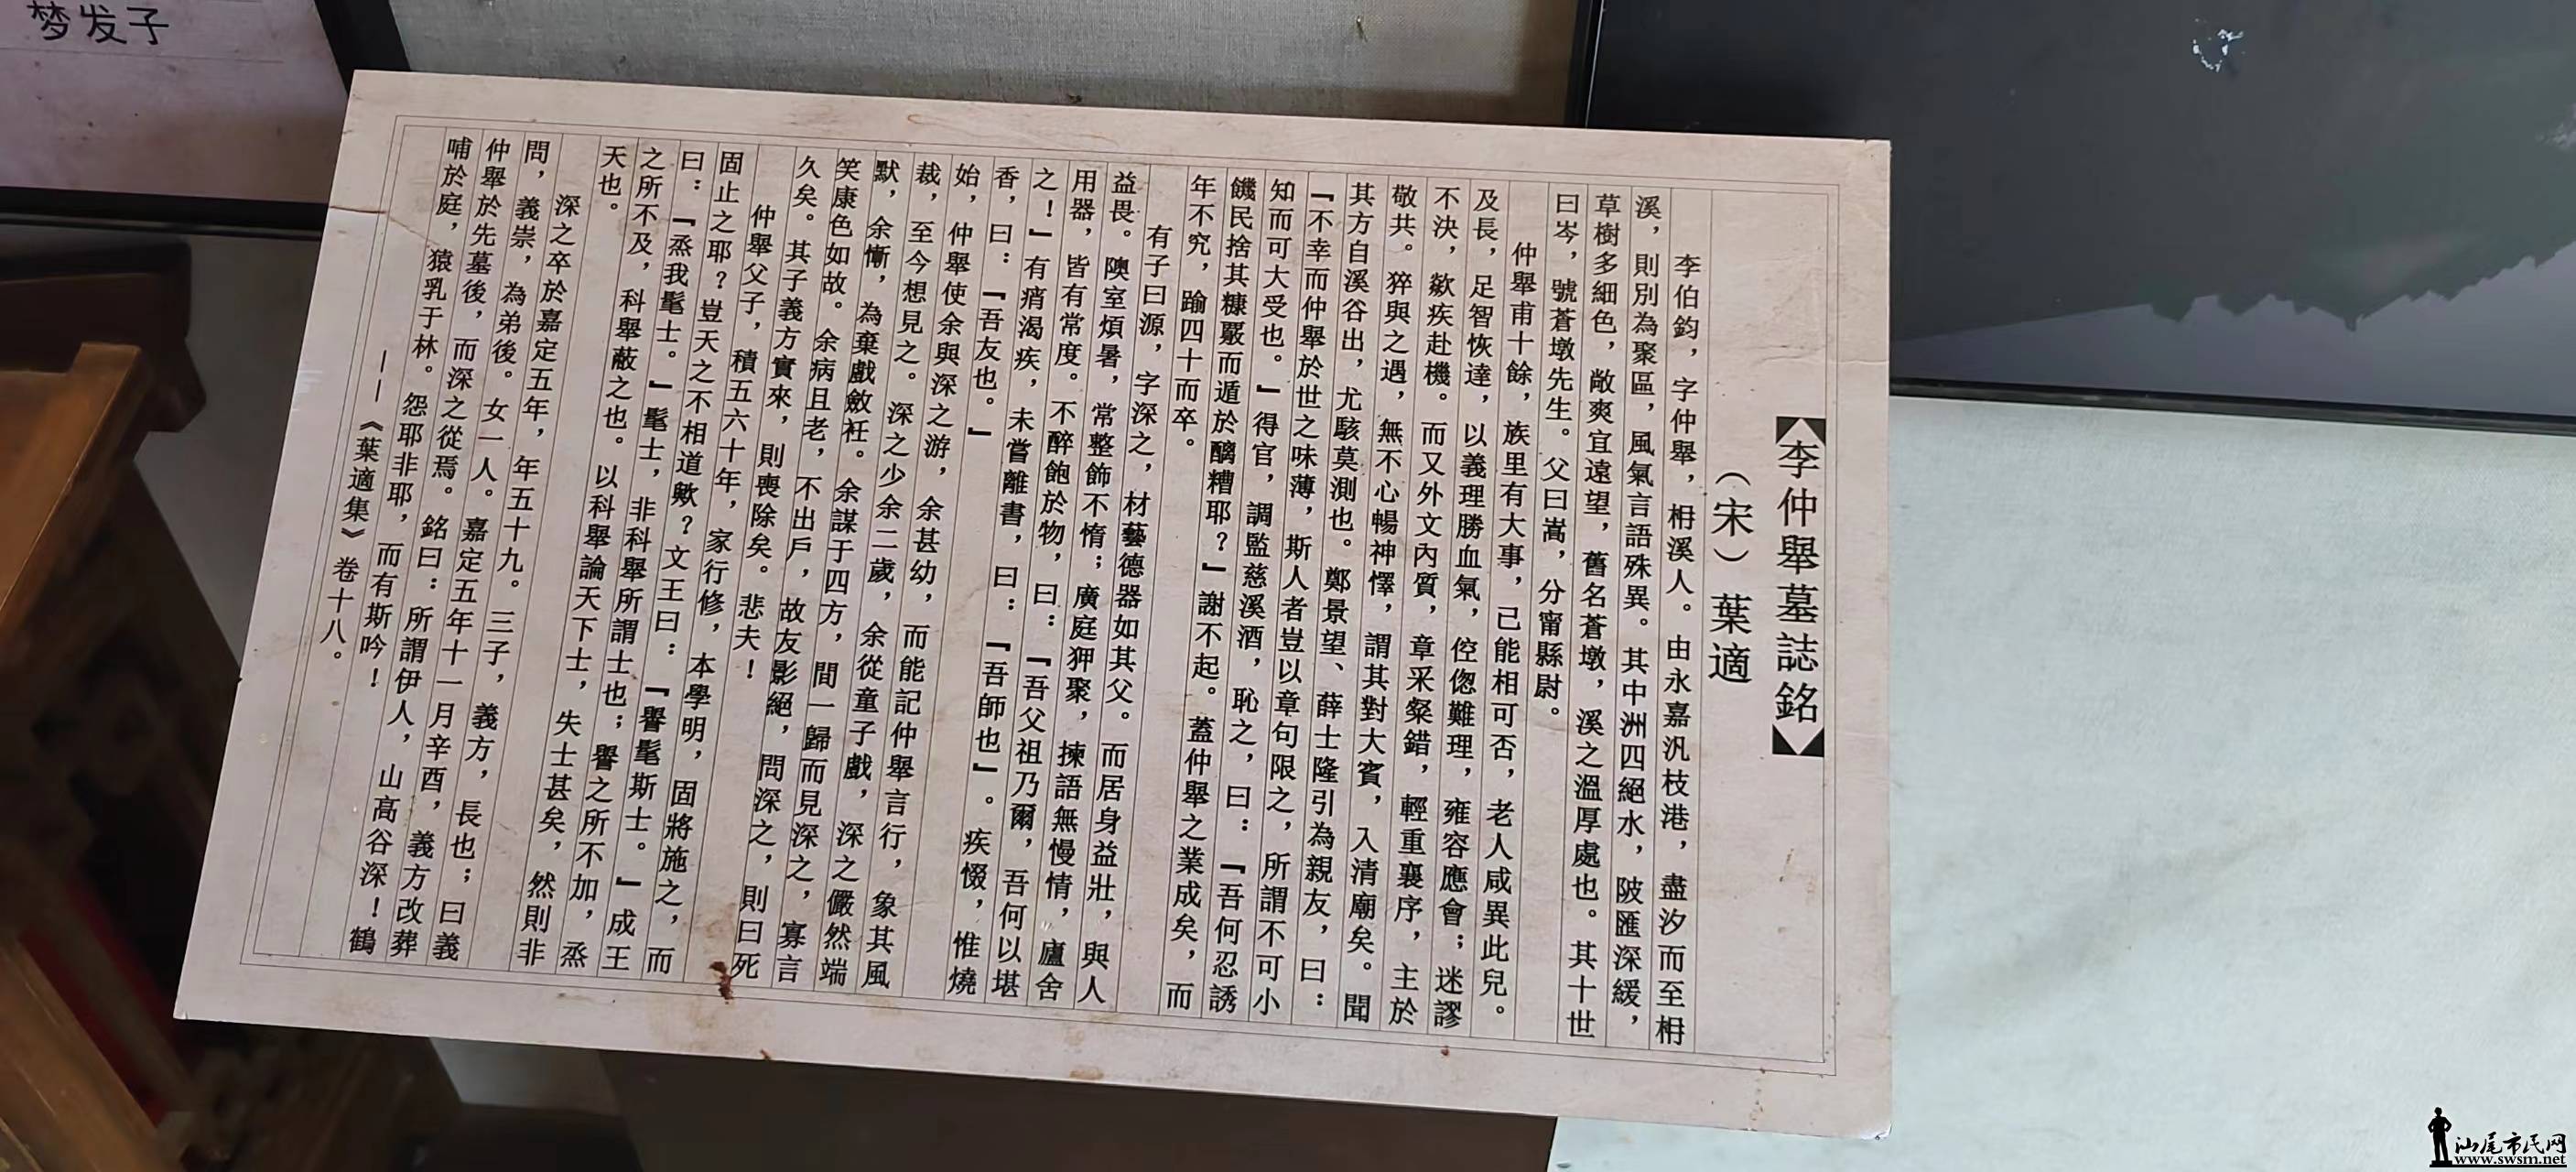 梦发子
李仲舉墓誌銘
（宋）葉適
李伯鈞，字仲舉，枏溪人。由永嘉汎枝港，盡汐而至枏
溪，則別為聚區，風氣言語殊異。其中洲四絕水，陂匯深緩，
草樹多細色，敞爽宜遠望，舊名蒼墩，溪之溫厚處也。其十世
曰岑，號蒼墩先生。父曰嵩，分甯縣尉。
仲舉甫十餘，族里有大事，已能相可否，老人咸異此兒。
及長，足智恢達，以義理勝血氣，倥偬難理，雍容應會；迷謬
不決，歘疾赴機。而又外文內質，章采粲錯，輕重襄序，主於
敬共。猝與之遇，無不心暢神懌，謂其對大賓，入清廟矣。聞
其方自溪谷出，尤駭莫測也。鄭景望、薛士隆引為親友，曰：
『不幸而仲舉於世之味薄，斯人者豈以章句限之，所謂不可小
知而可大受也。』得官，調監慈溪酒，恥之，曰：『吾何忍誘
饑民捨其糠覈而遁於醨糟耶？』謝不起。蓋仲舉之業成矣，而
年不究，踰四十而卒。
有子曰源，字深之，材藝德器如其父。而居身益壯，與人
益畏。隩室煩暑，常整飾不惰；廣庭狎聚，揀語無慢情，廬舍
用器，皆有常度。不醉飽於物，曰：『吾父祖乃爾，吾何以堪
之！』有痟渴疾，未嘗離書，曰：『吾師也』。疾惙，惟燒
香，曰：『吾友也。』
始，仲舉使余與深之游，余甚幼，而能記仲舉言行，象其風
裁，至今想見之。深之少余二歲，余從童子戲，深之儼然端
默，余慚，為棄戲斂衽。余謀于四方，間一歸而見深之，寡言
笑康色如故。余病且老，不出戶，故友影絕，問深之，則曰死
久矣。其子義方實來，則喪除矣。悲夫！
仲舉父子，積五六十年，家行修，本學明，固將施之，而
固止之耶？豈天之不相道歟？文王曰：『譽髦斯士。』成王
曰：『烝我髦士。』髦士，非科舉所謂士也；譽之所不加，烝
之所不及，科舉蔽之也。以科舉論天下士，失士甚矣，然則非
天也。
深之卒於嘉定五年，年五十九。三子，義方，長也；曰義
問，義崇，為弟後。女一人。嘉定五年十一月辛酉，義方改葬
仲舉於先墓後，而深之從焉。銘曰：所謂伊人，山高谷深！鶴
哺於庭，猿乳于林。怨耶非耶，而有斯吟！
——《葉適集》卷十八。
汕尾市民网
www.swsm.net